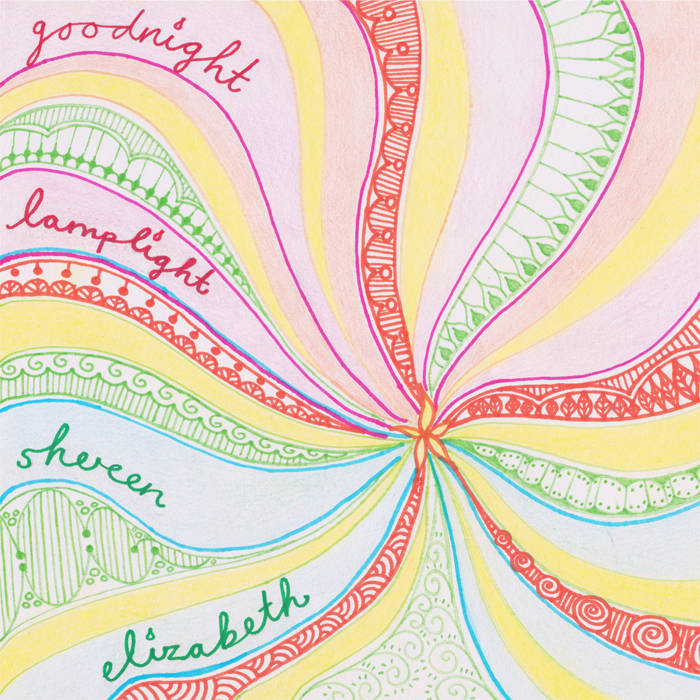 goodnight
lamplight
shereen
elizabeth